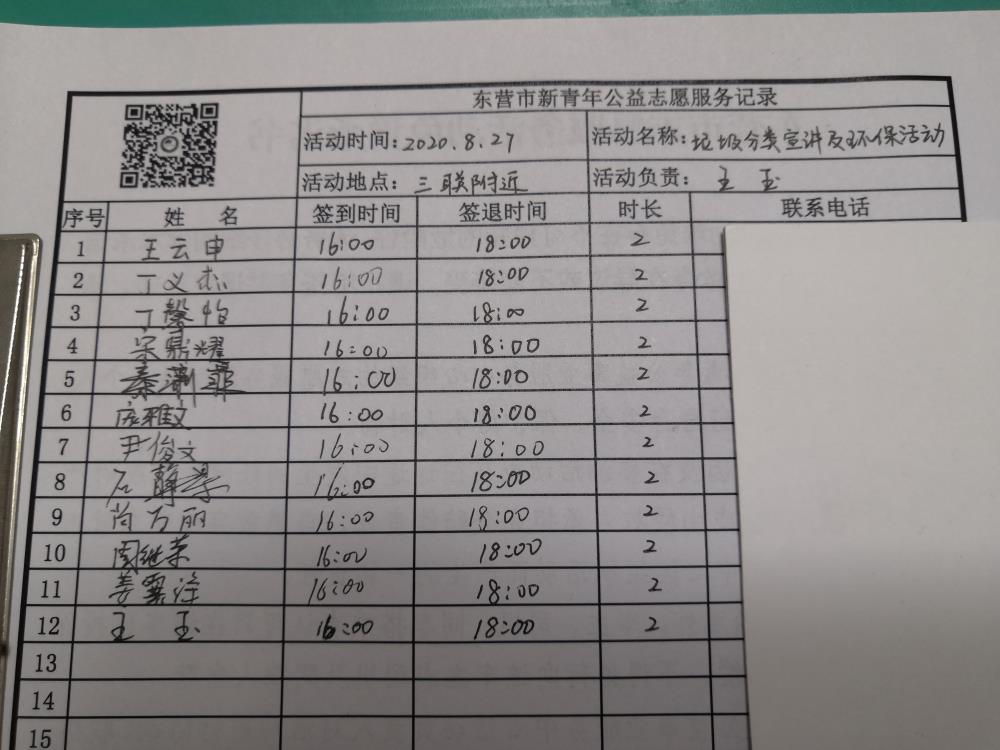 东营市新青年公益志愿服务记录
活动时间：2020.8.27 活动名称：垃圾分类宣讲及环保活动
活动地点：三联附近 活动负责：王玉
序号 姓 名 签到时间 签退时间 时长 联系电话
1 王云申 16:00 18:00 2
2 丁义杰 16:00 18:00 2
3 丁馨怡 16:00 18:00 2
4 宋鼎耀 16:00 18:00 2
5 秦 菲 16:00 18:00 2
6 庞雅文 16:00 18:00 2
7 尹俊文 16:00 18:00 2
8 石静 16:00 18:00 2
9 尚万丽 16:00 18:00 2
10 周继荣 16:00 18:00 2
11 姜 16:00 18:00 2
12 王玉 16:00 18:00 2
13
14
15